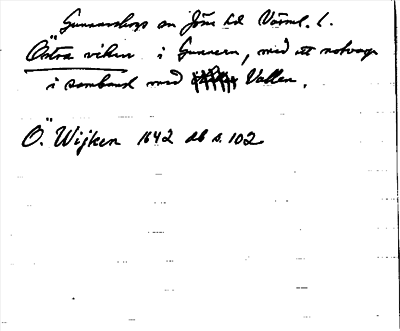 Gunnarskogs sn Jösse hd Värml. l.
Östra viken i Gunnern, med ett notvarp
i samband med Vallen.
Ö. Wijken 1642 db s. 102